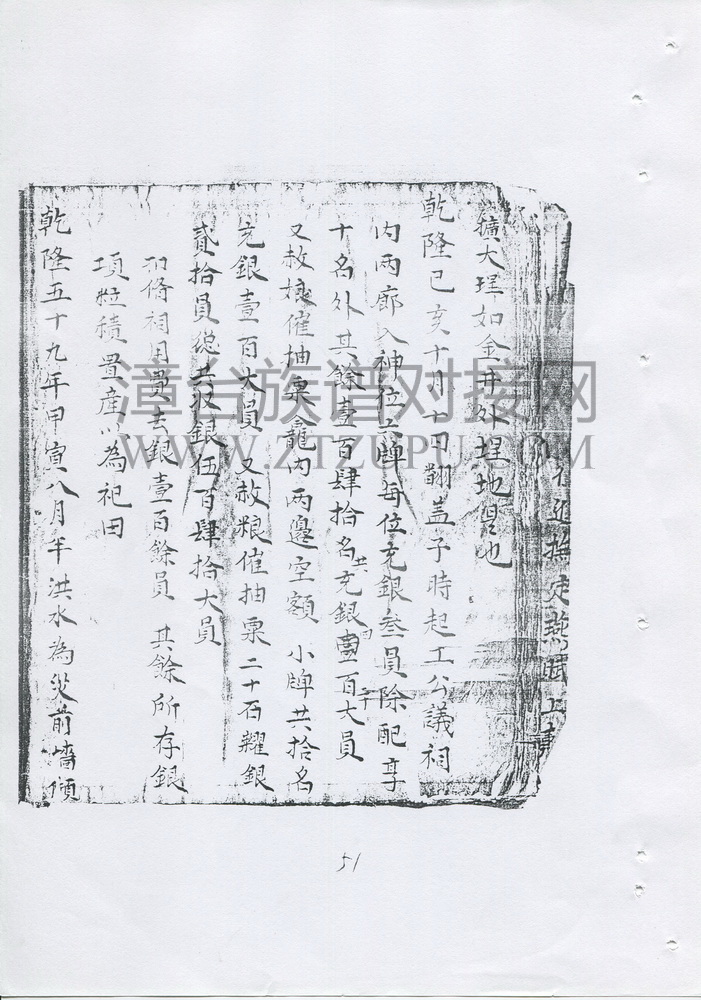 擴大埕如金井外埕地豐也
乾隆己亥十月十四翻盖子時起工公議祠
內兩廊入神位立牌每位充銀叁員除配享
十名外其餘壹百肆拾名共充銀四百二十大員
又赦娘催抽粟入龕內兩邊空額小牌共拾名
充銀壹百大員又赦粮催抽粟二十石糶銀
貳拾員總共収銀伍百肆拾大員
祠脩祠用費去銀壹百餘員其餘所存銀
項粒積置產以為祀田
乾隆五十九年甲寅八月半洪水為災前墻傾
漳台族谱对接网
WWW.ZTZUPU.COM
51